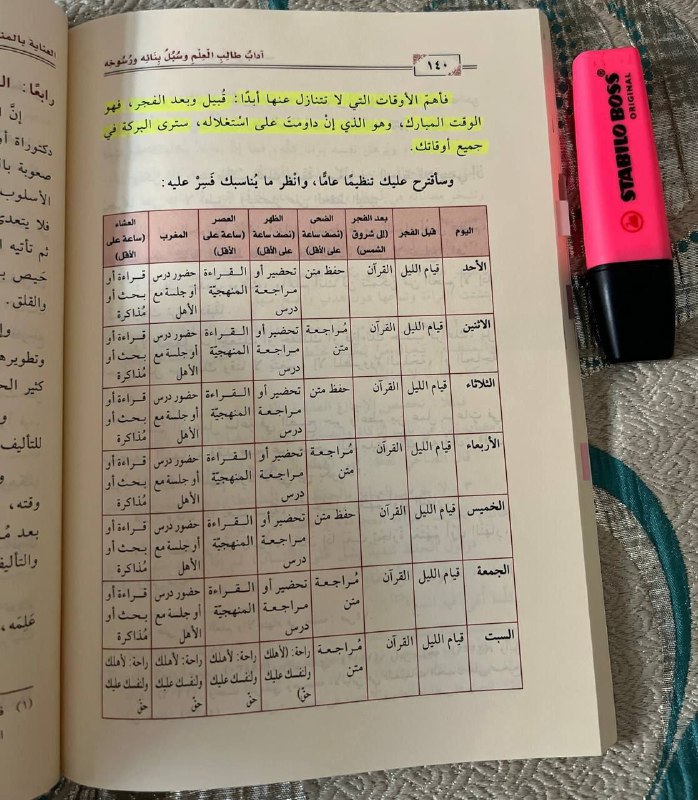 آدابُ طَالِبِ الْعِلْمِ وَسُبُلُ بِنَائِه وَرُسُوخِه
١٤٠
فأهمّ الأوقات التي لا تتنازل عنها أبدًا: قُبيل وبعد الفجر، فهو
الوقت المبارك، وهو الذي إنْ داومتَ على اسْتغلاله، سترى البركة في
جميع أوقاتك.
وسأقترح عليك تنظيمًا عامًّا، وانْظر ما يُناسبك فَسِرْ عليه:
بعد الفجر الضحى الظهر العصر العشاء
اليوم قبل الفجر (إلى شروق (نصف ساعة (نصف ساعة (ساعة على المغرب (ساعة على
الشمس) على الأقل) على الأقل) الأقل) الأقل)
الأحد قيام الليل القرآن حفظ متن تحضير أو القراءة حضور درس قراءة أو
مراجعة المنهجيّة أو جلسة مع بحث أو
درس الأهل مُذاكرة
الاثنين قيام الليل القرآن مُراجعة تحضير أو القراءة حضور درس قراءة أو
متن مراجعة المنهجيّة أو جلسة مع بحث أو
درس الأهل مُذاكرة
الثلاثاء قيام الليل القرآن حفظ متن تحضير أو القراءة حضور درس قراءة أو
مراجعة المنهجيّة أو جلسة مع بحث أو
درس الأهل مُذاكرة
الأربعاء قيام الليل القرآن مُراجعة تحضير أو القراءة حضور درس قراءة أو
متن مراجعة المنهجيّة أو جلسة مع بحث أو
درس الأهل مُذاكرة
الخميس قيام الليل القرآن حفظ متن تحضير أو القراءة حضور درس قراءة أو
مراجعة المنهجيّة أو جلسة مع بحث أو
درس الأهل مُذاكرة
الجمعة قيام الليل القرآن مُراجعة تحضير أو القراءة حضور درس قراءة أو
متن مراجعة المنهجيّة أو جلسة مع بحث أو
درس الأهل مُذاكرة
السبت قيام الليل القرآن مُراجعة راحة: (لأهلك راحة: لأهلك راحة: لأهلك راحة: لأهلك
متن ولنفسك عليك ولنفسك عليك ولنفسك عليك ولنفسك عليك
حقّ) حقّ حقّ حقّ
رابعًا:
دكتوراة
صعوبة
الأسلوب
فلا يتعدى
ثم تأتيه
والقلق.
وتطويرها
كثير
للتأليف
وقته،
بعد
والتأليف
عَلِمَه،
(١)
STABILO BOSS
ORIGINAL